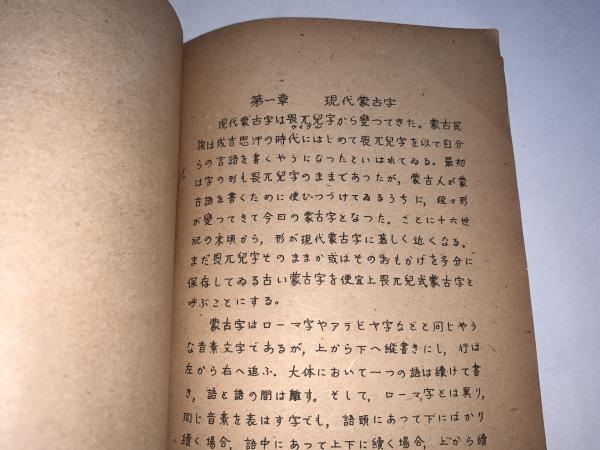 第一章　現代蒙古字
現代蒙古字は畏兀兒字から變つてきた。蒙古民
ウイグル
族は成吉思汗の時代にはじめて畏兀兒字を以て自分
らの言語を書くやうになったといはれてゐる。最初
は字の形も畏兀兒字のままであつたが，蒙古人が蒙
古語を書くために使ひつづけてゐるうちに，段々形
が變つてきて今日の蒙古字となつた。ことに十六世
紀の末頃から，形が現代蒙古字に著しく近くなる。
まだ畏兀兒字そのままか或はそのおもかげを多分に
保存してゐる古い蒙古字を便宜上畏兀兒式蒙古字と
呼ぶことにする。
蒙古字はローマ字やアラビヤ字などと同じやう
な音素文字であるが，上から下へ縦書きにし，行は
左から右へ追ふ。大体において一つの語は續けて書
き，語と語の間は離す。そして，ローマ字とは異り，
同じ音素を表はす字でも，語頭にあつて下にばかり
續く場合，語中にあつて上下に續く場合，上から續